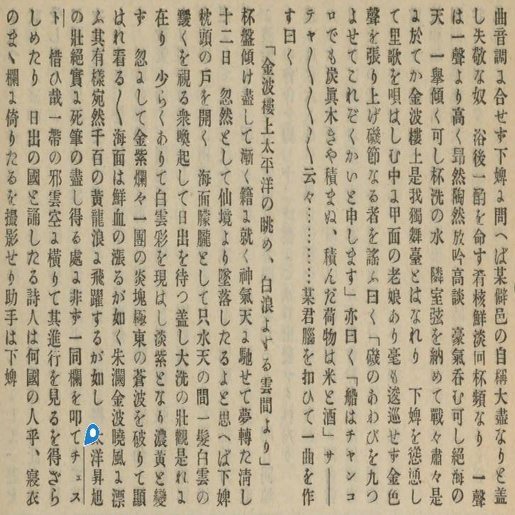 曲音調ユ合せず下婢ユ問へば某僻邑の自稱大盡なりと盖
し失敬な奴 浴後一酌を命す肴核鮮淡回杯頻なり 一聲
は一聲より高く昻然陶然放吟高談 豪氣呑む可し絕海の
天 一擧傾く可し杯洗の水 隣室弦を納めて戰々肅々是
ユ於てか金波樓上是我獨舞臺とはなれり 下婢を慫慂し
て里歌を唄はしむ中ユ甲面の老娘あり毫も逡巡せず金色
聲を張り上げ磯節なる者を謠ふ曰く「磯のあわびを九つ
よせてこれぞくかいと申します」亦曰く「船はチャンコ
ロでも炭眞木きや積まぬ、積んだ荷物は米と酒」サ――
テャ〳〵〳〵〳〵云々…………某君腦を扣ひて一曲を作
す曰く
「金波樓上太平洋の眺め、白浪よする雲間より」
杯盤傾け盡して漸く籍ユ就く神氣天ユ馳せて夢轉た淸し
十二日 忽然として仙境より墜落したるよと思へば下婢
枕頭の戶を開く 海面朦朧として只水天の間一髮白雲の
變くを視る衆喚起して日出を待つ盖し大洗の壯觀是れユ
在り 少らくありて白雲彩を現はし淡紫となり濃黃と變
ず 忽ユして金紫爛々一團の炎塊極東の蒼波を破りて顯
はれ看る〳〵海面は鮮血の漲るが如く朱瀾金波曉風ユ漂
ふ其有樣宛然千百の黃龍浪ユ飛躍するが如し 太洋昇旭
の壯絕實ユ死筆の盡し得る處ユ非ず一同欄を叩てチェス
ト 惜ひ哉一帶の邪雲空ユ橫りて其進行を見るを得ざら
しめたり 日出の國と誦したる詩人は何國の人乎、寢衣
のまゝ欄ユ倚りたるを撮影せり助手は下婢